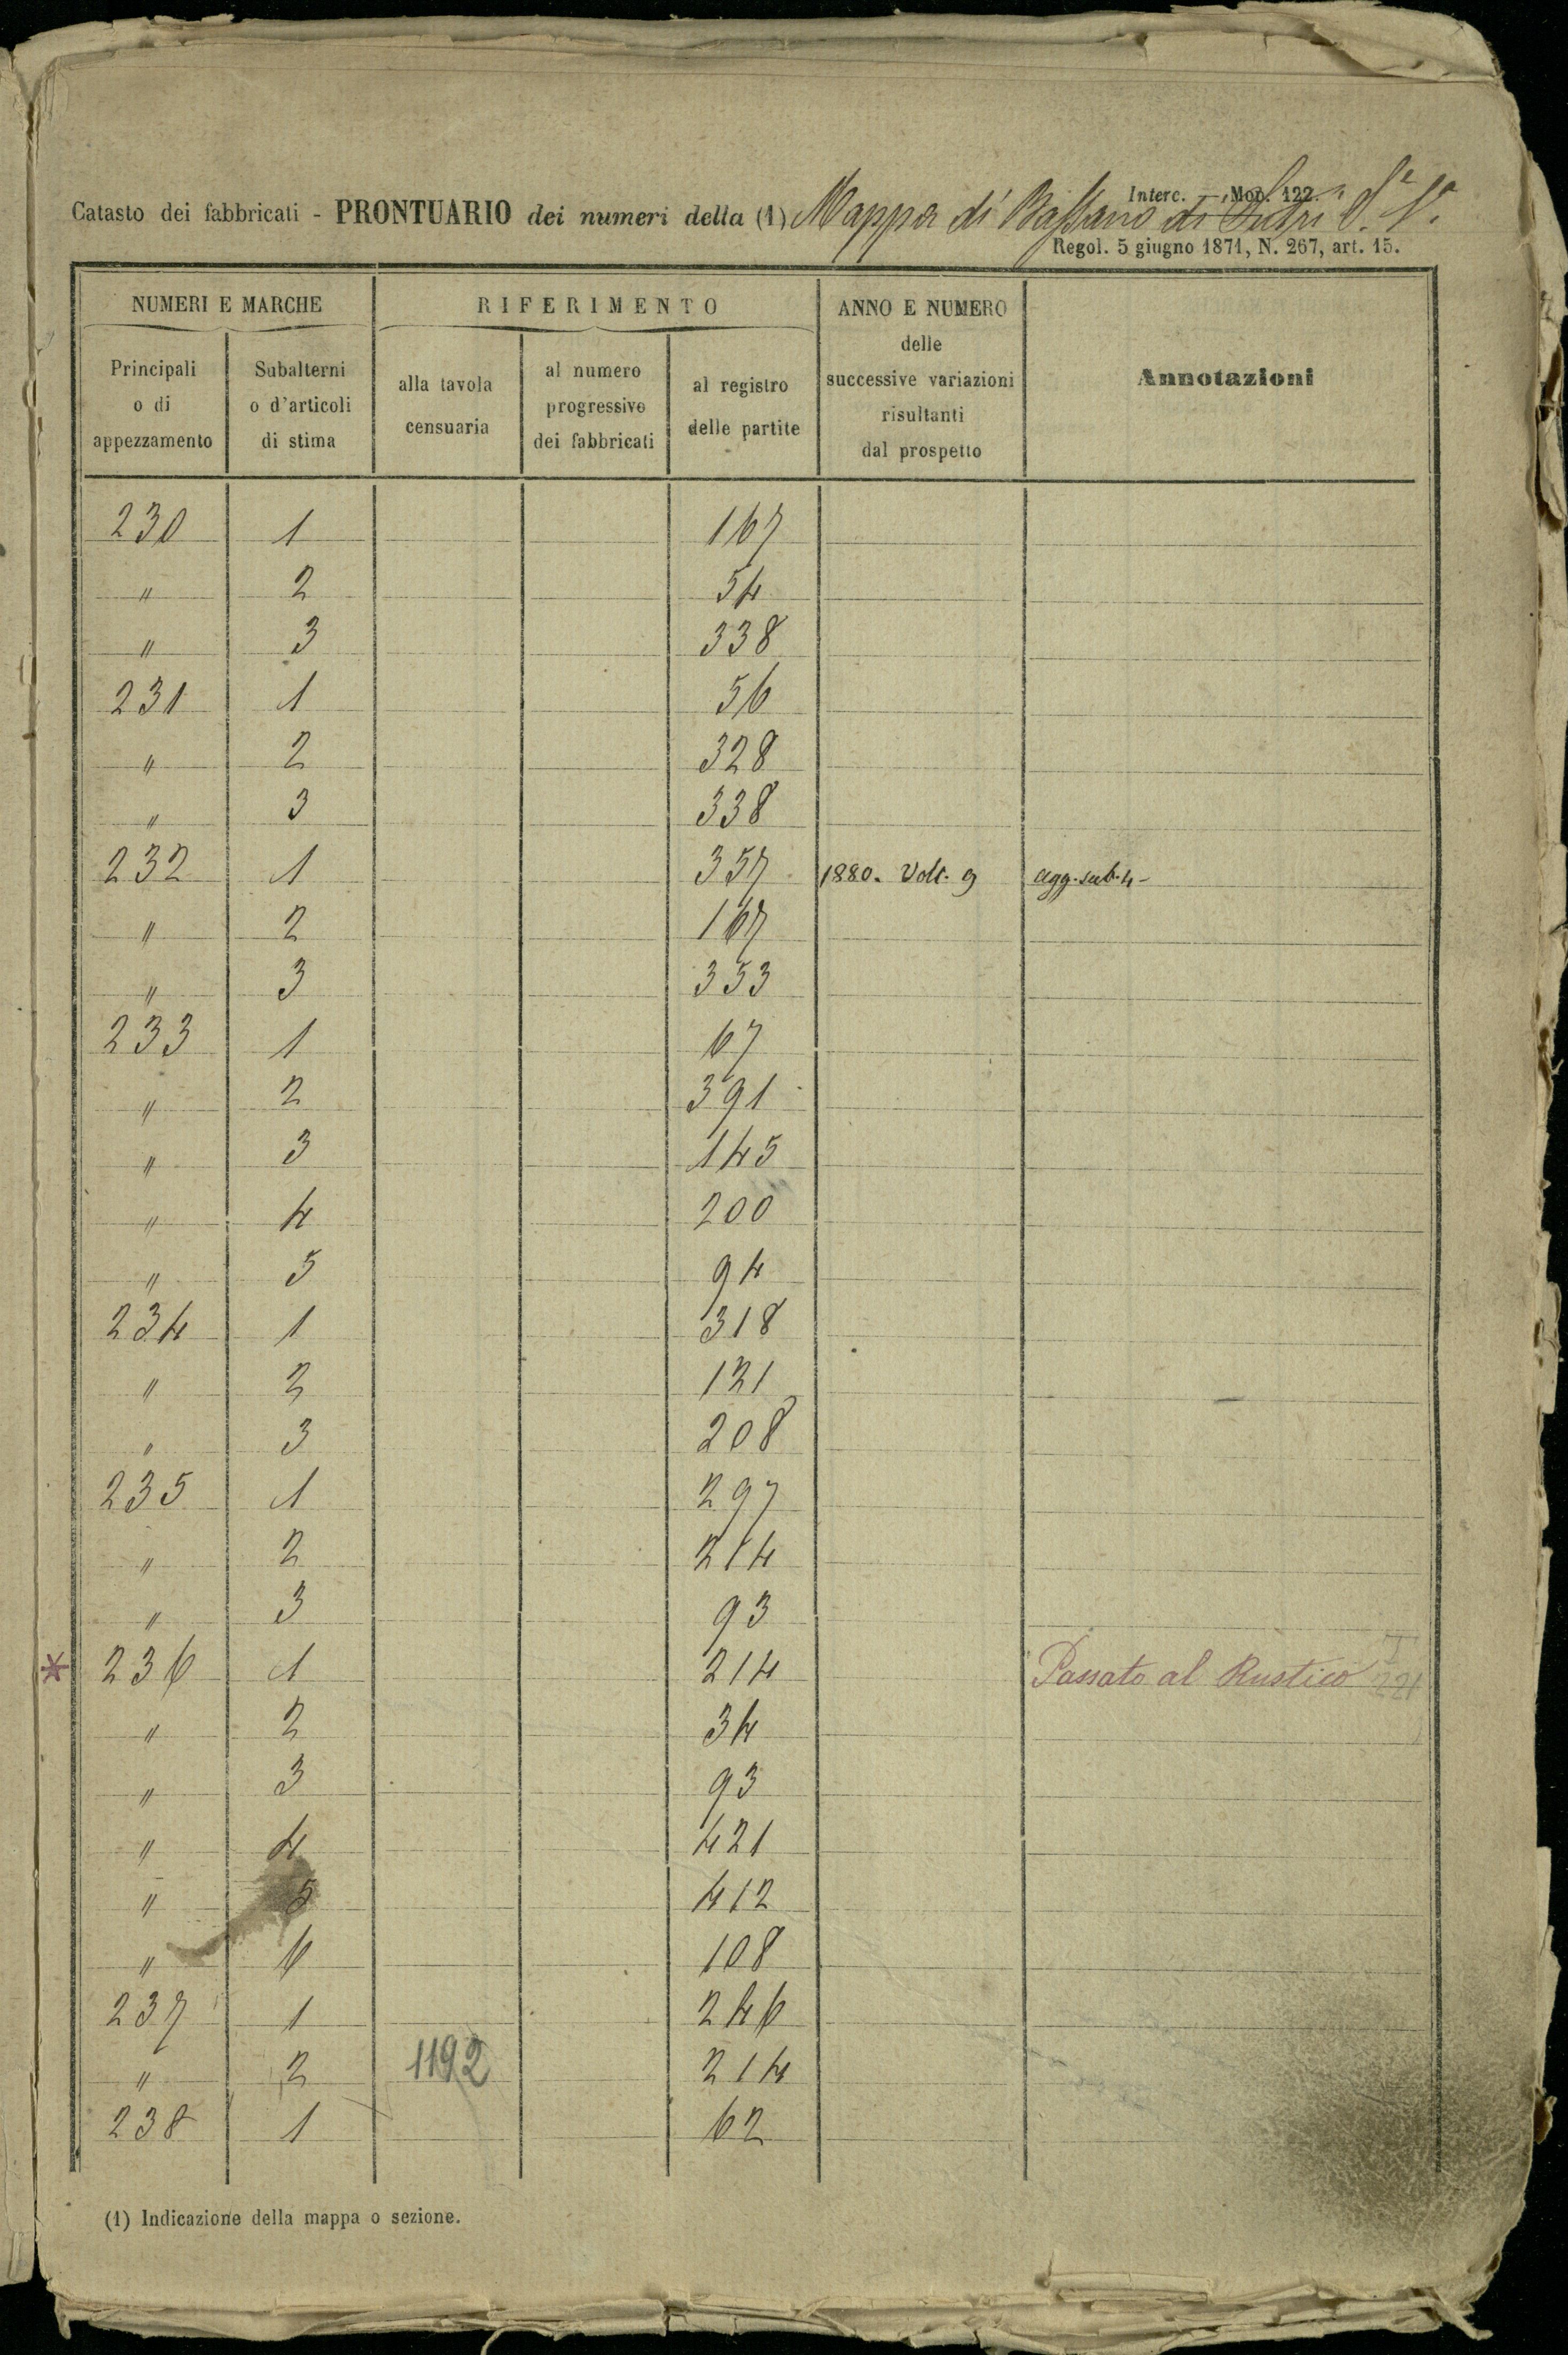 Interc. — Mod. 122.
Catasto dei fabbricati - PRONTUARIO dei numeri della (1) Mappa di Bassano di Sutri S.ª I.ª
Regol. 5 giugno 1871, N. 267, art. 15.
NUMERI E MARCHE RIFERIMENTO ANNO E NUMERO delle successive variazioni risultanti dal prospetto Annotazioni
Principali o di appezzamento Subalterni o d'articoli di stima alla tavola censuaria al numero progressivo dei fabbricati al registro delle partite
230 1 167
" 2 54
" 3 338
231 1 56
" 2 328
" 3 338
232 1 357 1880. Volt. 9 agg. sub. 4 -
" 2 167
" 3 353
233 1 67
" 2 391
" 3 145
" 4 200
" 5 94
234 1 318
" 2 121
" 3 208
235 1 297
" 2 214
" 3 93
* 236 1 214 Passato al Rustico 221
" 2 34
" 3 93
" 4 421
" 5 412
" 6 108
237 1 246
" 2 1192 214
238 1 62
(1) Indicazione della mappa o sezione.